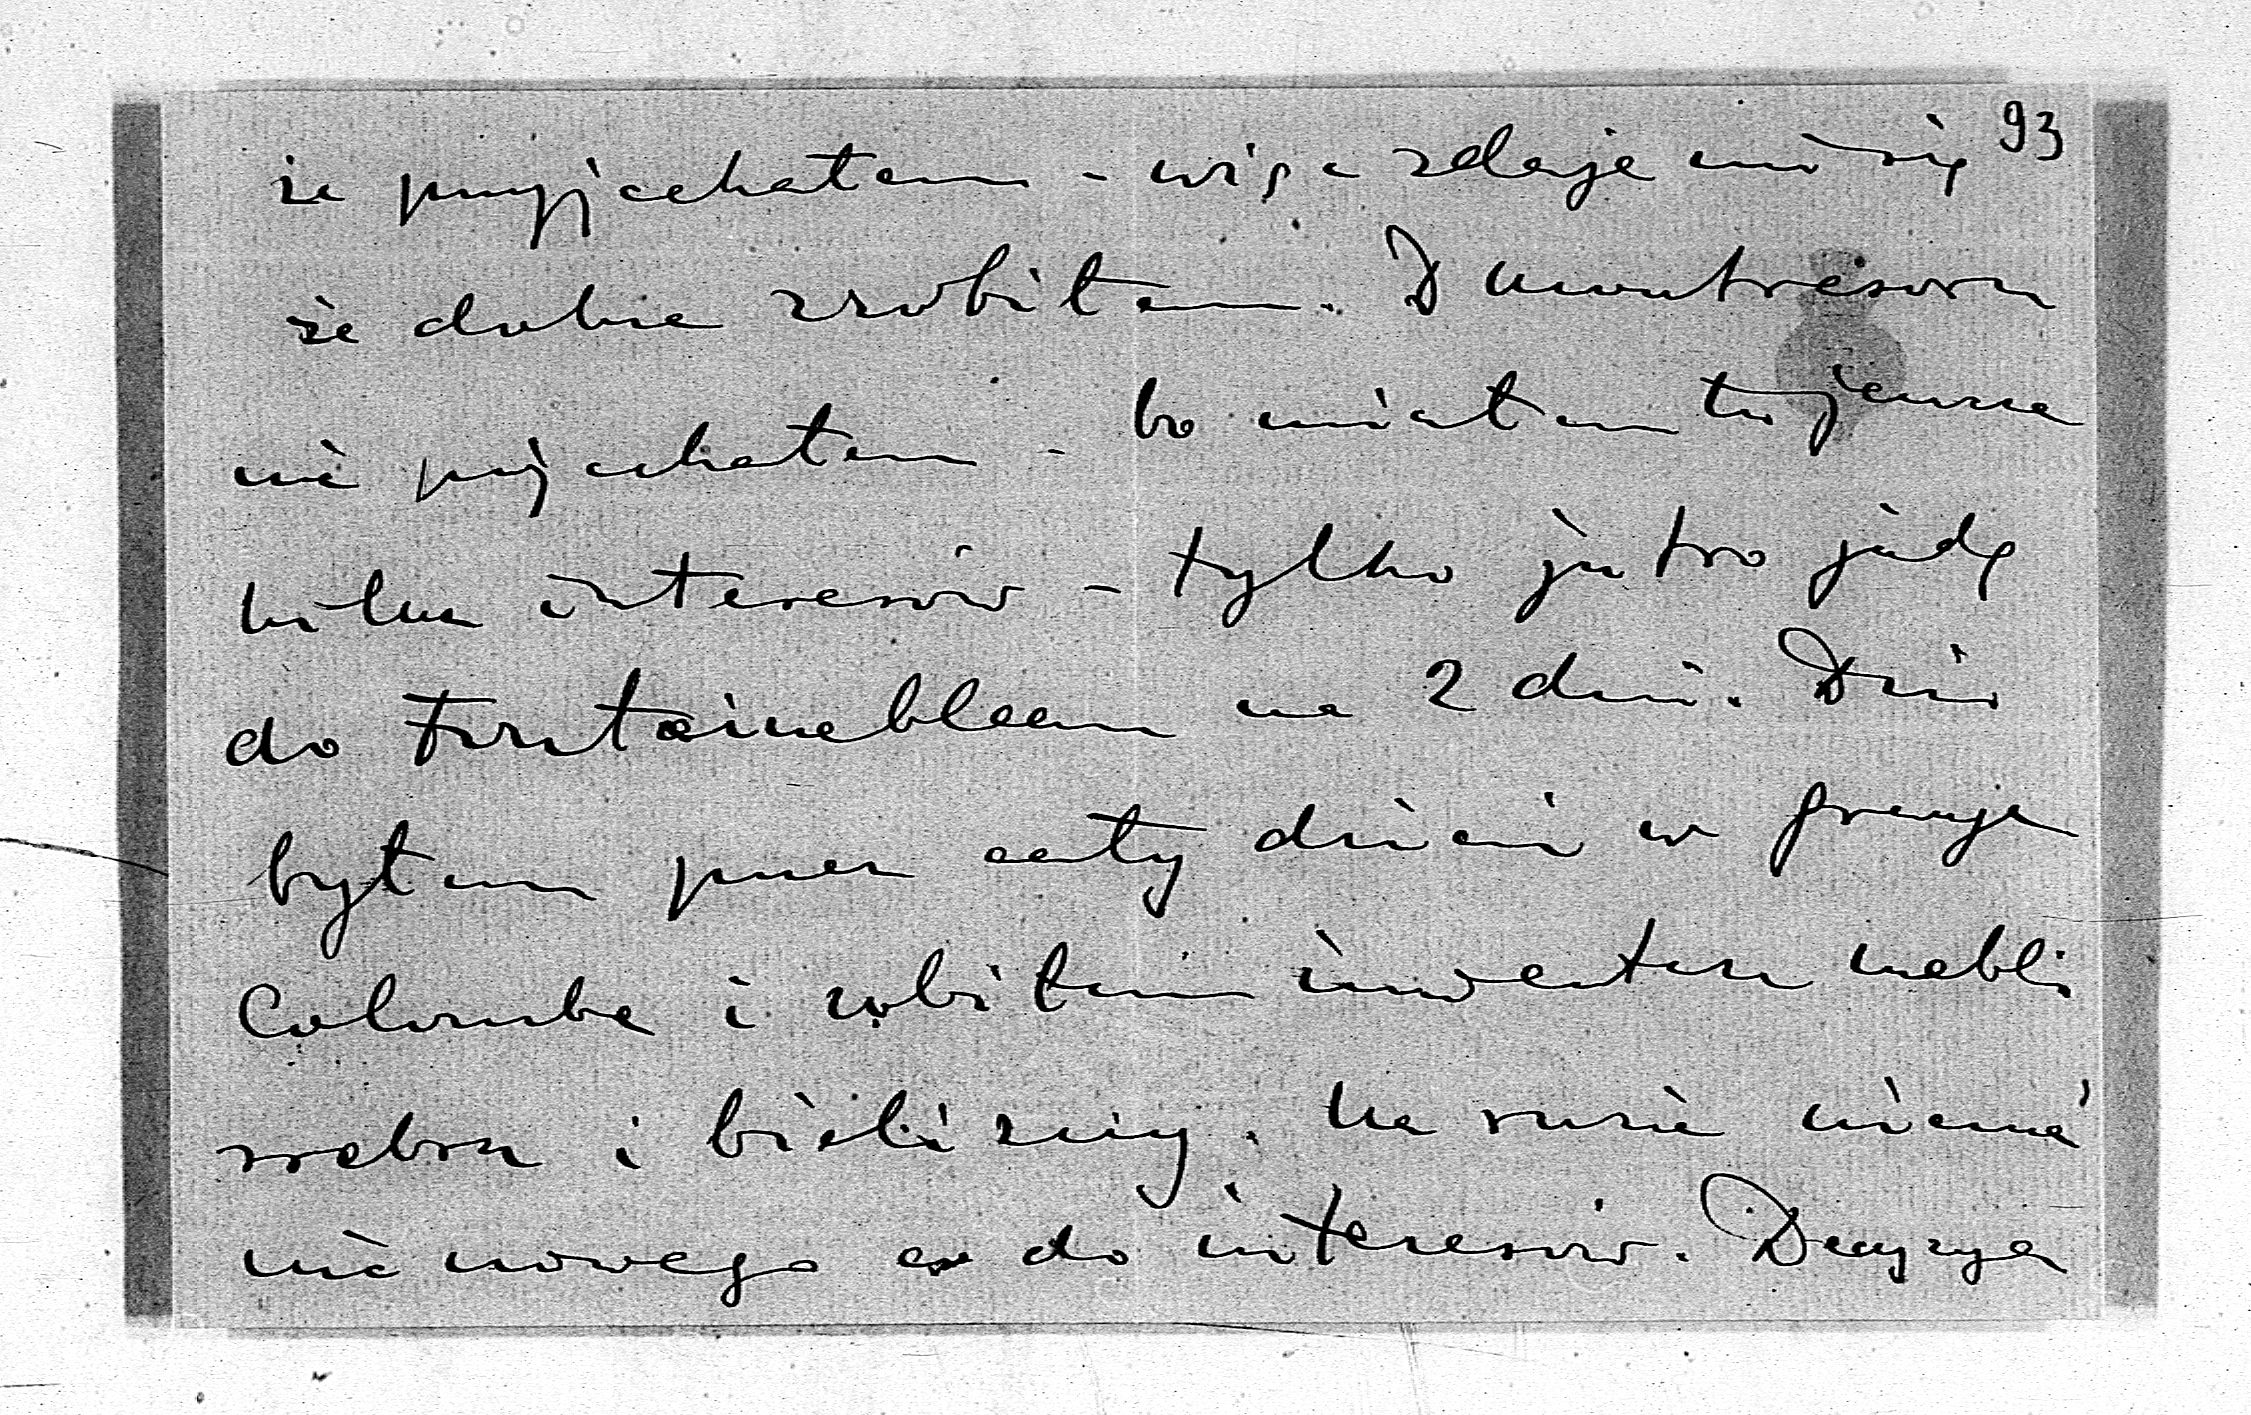 93
że przyjechałem - więc zdaje mi się
że dobrze zrobiłem. D Montresoru
nie pojechałem - bo miałem tu jeszcze
kilka interesów - tylko jutro jadę
do Fontainebleau na 2 dni. Dziś
byłem przez cały dzień w
Colombe i robiłem inwentarz mebli
srebra i bielizny. Na razie niema
nic nowego co do interesów. Decyzya